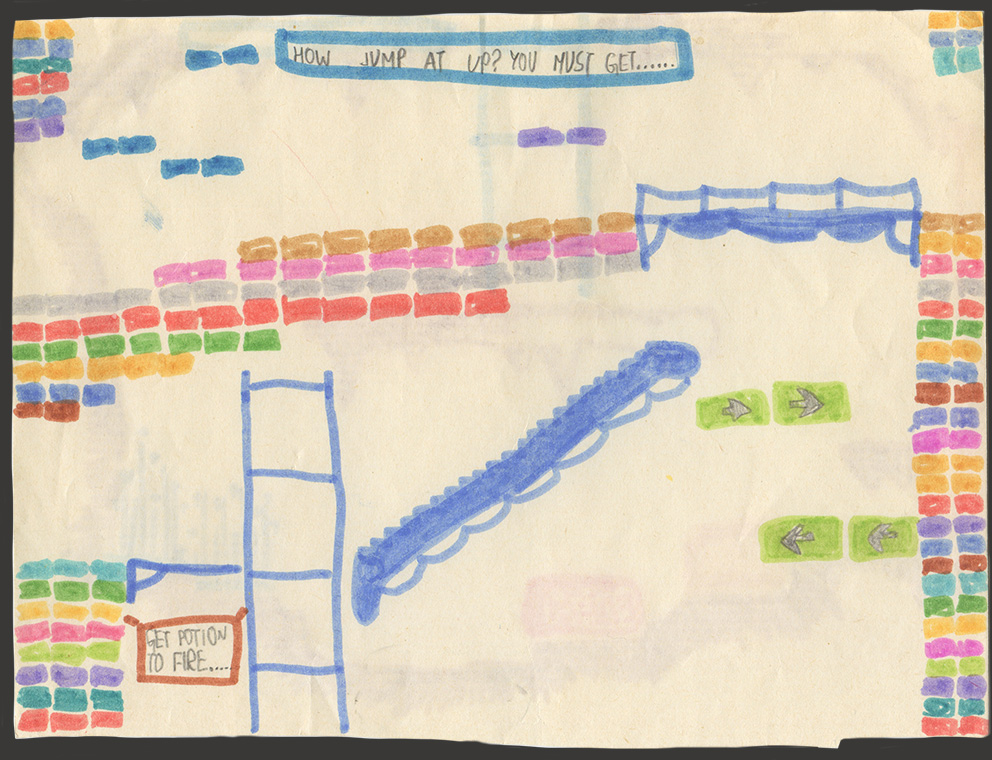 HOW JUMP AT UP? YOU MUST GET......
GET POTION
TO FIRE.....